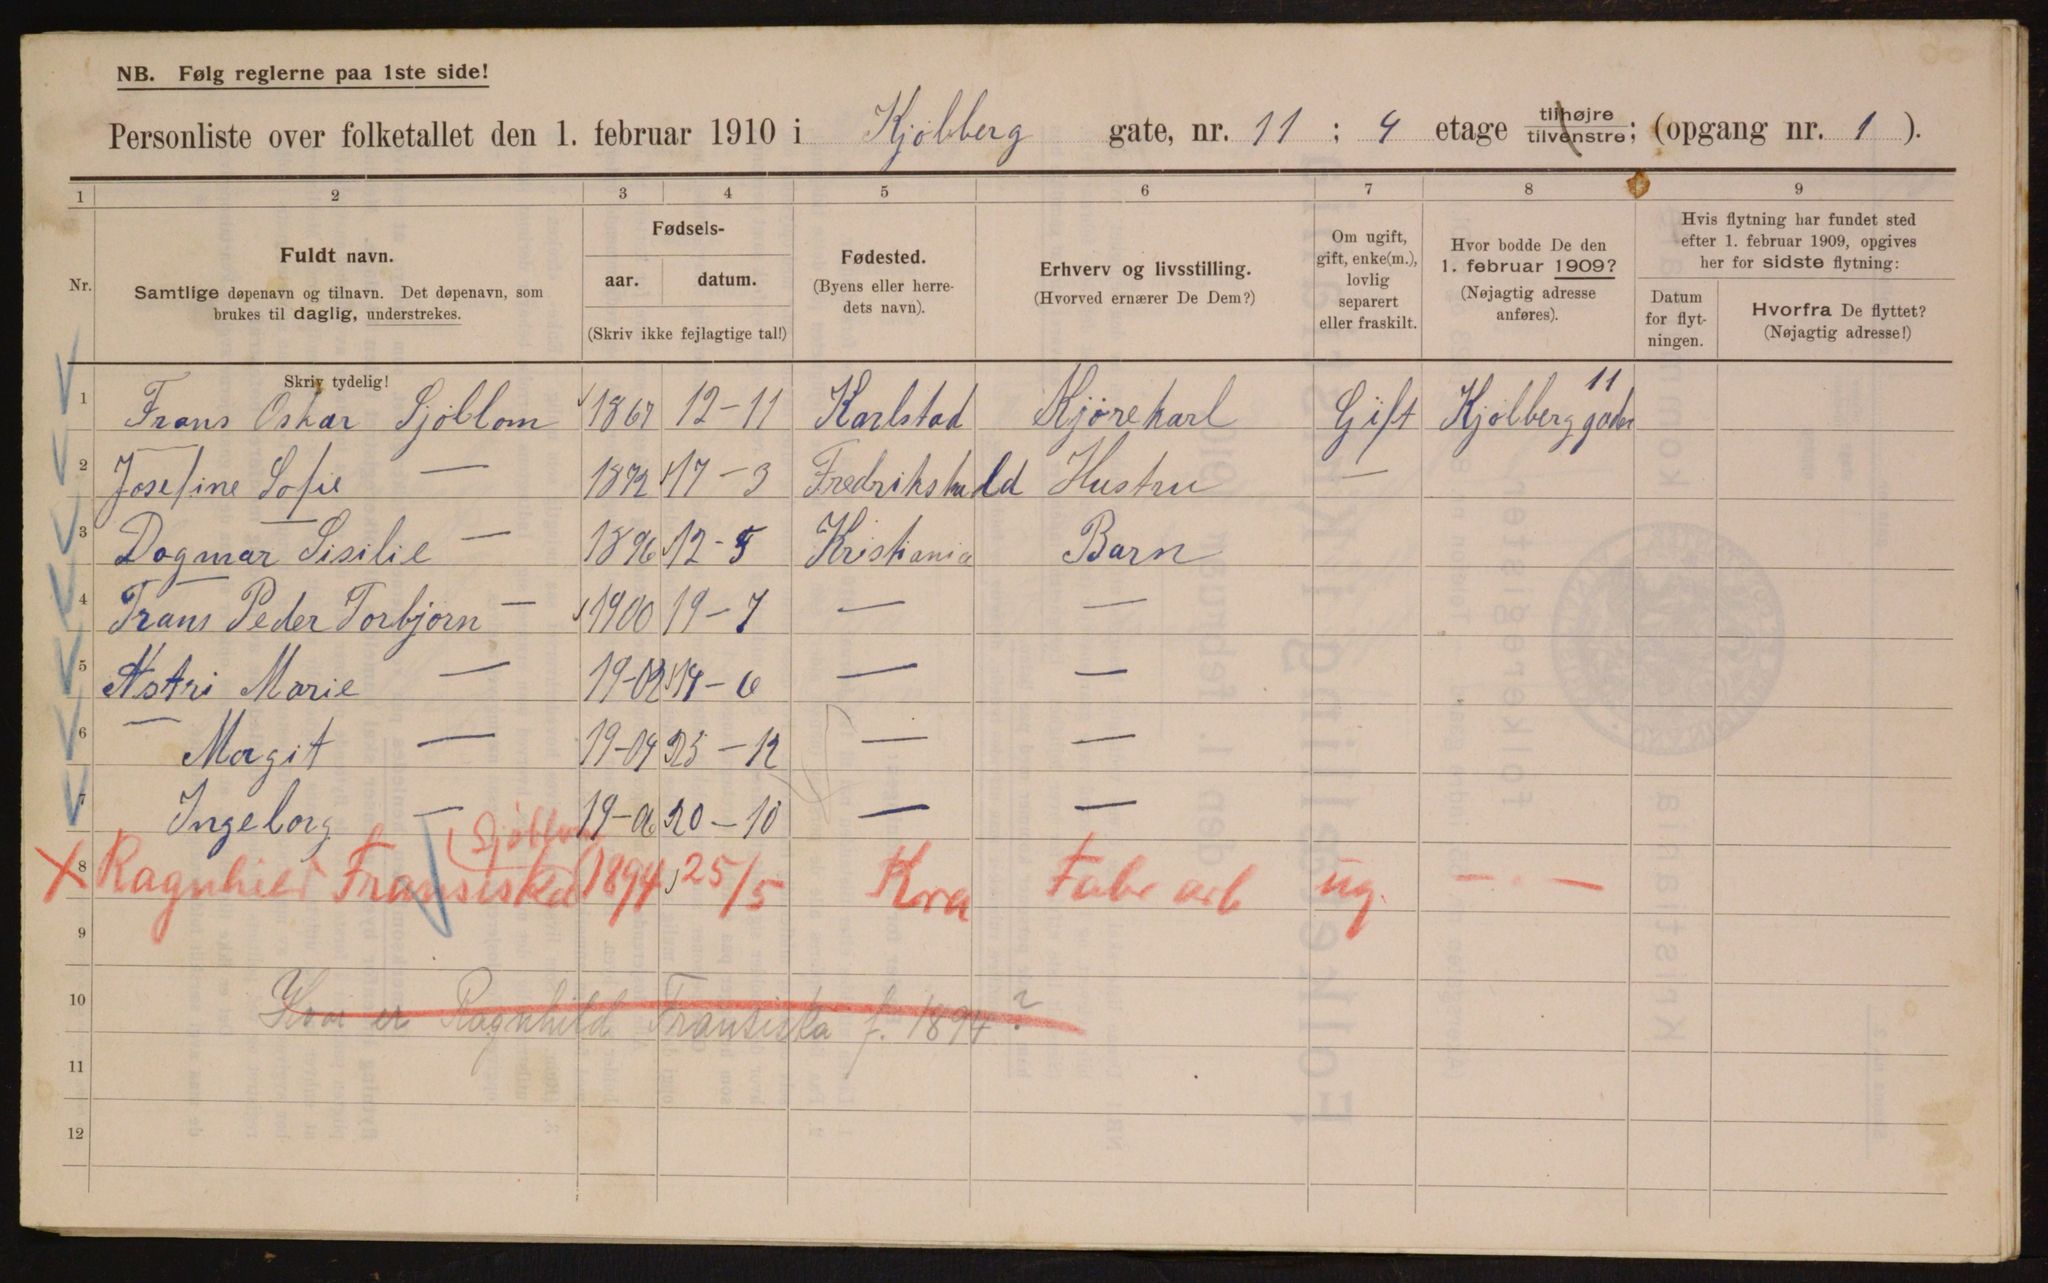 NB. Følg reglerne paa 1ste side!
Personliste over folketallet den 1. februar 1910 i Kjølberg gate, nr. 11 ; 4 etage tilhøjre tilvenstre; (opgang nr. 1 ).
1 2 3 4 5 6 7 8 9
Nr.
Fuldt navn.
Samtlige døpenavn og tilnavn. Det døpenavn, som
brukes til daglig, understrekes.
Fødsels-
aar. datum.
(Skriv ikke fejlagtige tal!)
Fødested.
(Byens eller herre-
dets navn).
Erhverv og livsstilling.
(Hvorved ernærer De Dem?)
Om ugift,
gift, enke(m.),
lovlig
separert
eller fraskilt.
Hvor bodde De den
1. februar 1909?
(Nøjagtig adresse
anføres).
Hvis flytning har fundet sted
efter 1. februar 1909, opgives
her for sidste flytning:
Datum
for flyt-
ningen.
Hvorfra De flyttet?
(Nøjagtig adresse!)
Skriv tydelig!
1 Frans Oskar Sjöblom 1867 12-11 Karlstad Kjørekarl Gift Kjølberggaden 11
2 Josefine Sofie — 1872 17-3 Fredrikshald Hustru —
3 Dagmar Sisilie — 1896 12-5 Kristiania Barn
4 Frans Peder Torbjørn — 1900 19-7 — —
5 Astri Marie — 19-02 14-6 — —
6 Margit — 19-04 25-12 — —
7 Ingeborg — 19-06 20-10 — —
8 Ragnhild Fransiska Sjöblom 1894 25/5 Kra Fabr arb ug. — · —
9
10 Hvor er Ragnhild Fransiska f. 1894?
11
12